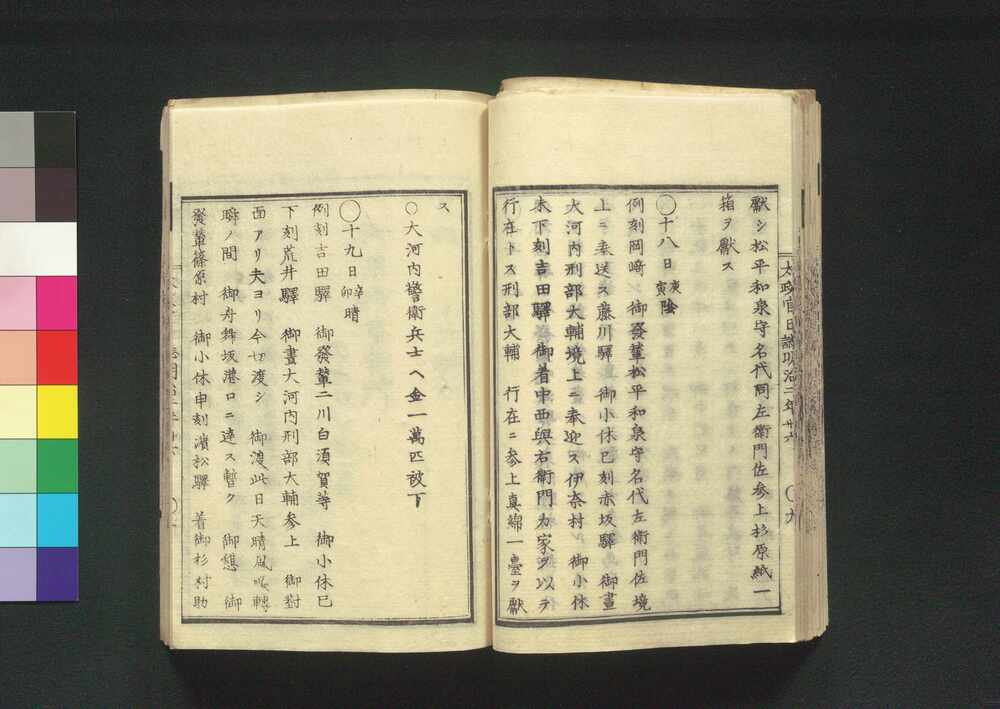 獻シ松平和泉守名代同左衛門佐参上杉原紙一
箱ヲ獻ス
◯十八日庚寅陰
例刻岡﨑ノ御發輦松平和泉守名代左衛門佐境
上ニ奉送ス藤川驛御小休巳刻赤坂驛御晝
大河内刑部大輔境上ニ奉迎ス伊奈村御小休
未下刻吉田驛御着中西與右衛門カ家ヲ以テ
行在トス刑部大輔行在ニ参上真綿一臺ヲ獻
太政官日誌明治二年廿六
◯九
ス
○大河内警衛兵士ヘ金一萬匹被下
◯十九日辛卯晴
例刻吉田驛御發輦二川白須賀等御小休巳
下刻荒井驛御晝大河内刑部大輔参上御對
面アリ夫ヨリ今切渡シ御渡此日天晴風
瞬ノ間御舟舞坂港口ニ達ス暫ク御憩御
發輦篠原村御小休申刻濱松驛着御杉村助